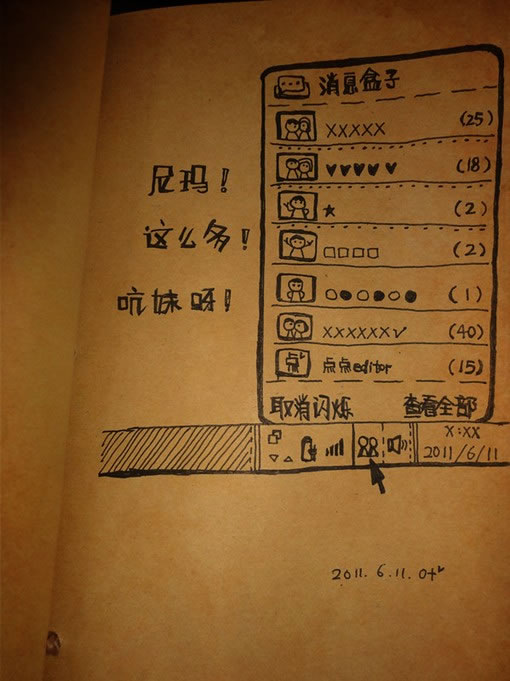 消息盒子
XXXXX (25)
♥♥♥♥♥ (18)
尼玛!
★ (2)
这么多!
□□□□ (2)
吭妹呀!
○●○●○● (1)
XXXXXX✓ (40)
点 点点editor (15)
取消闪烁 查看全部
X:XX
2011/6/11
2011.6.11.